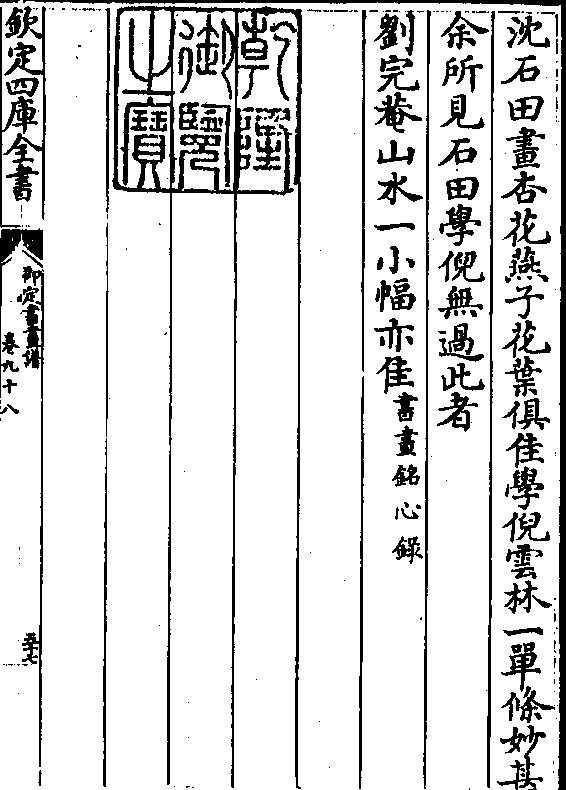 沈石田畫杏花燕子花葉俱佳學倪雲林一單條妙甚
余所見石田學倪無過此者
劉完菴山水一小幅亦佳書畫銘心錄
乾隆
御覽
之寶
欽定四庫全書
御定書畫譜
卷九十八
五十七